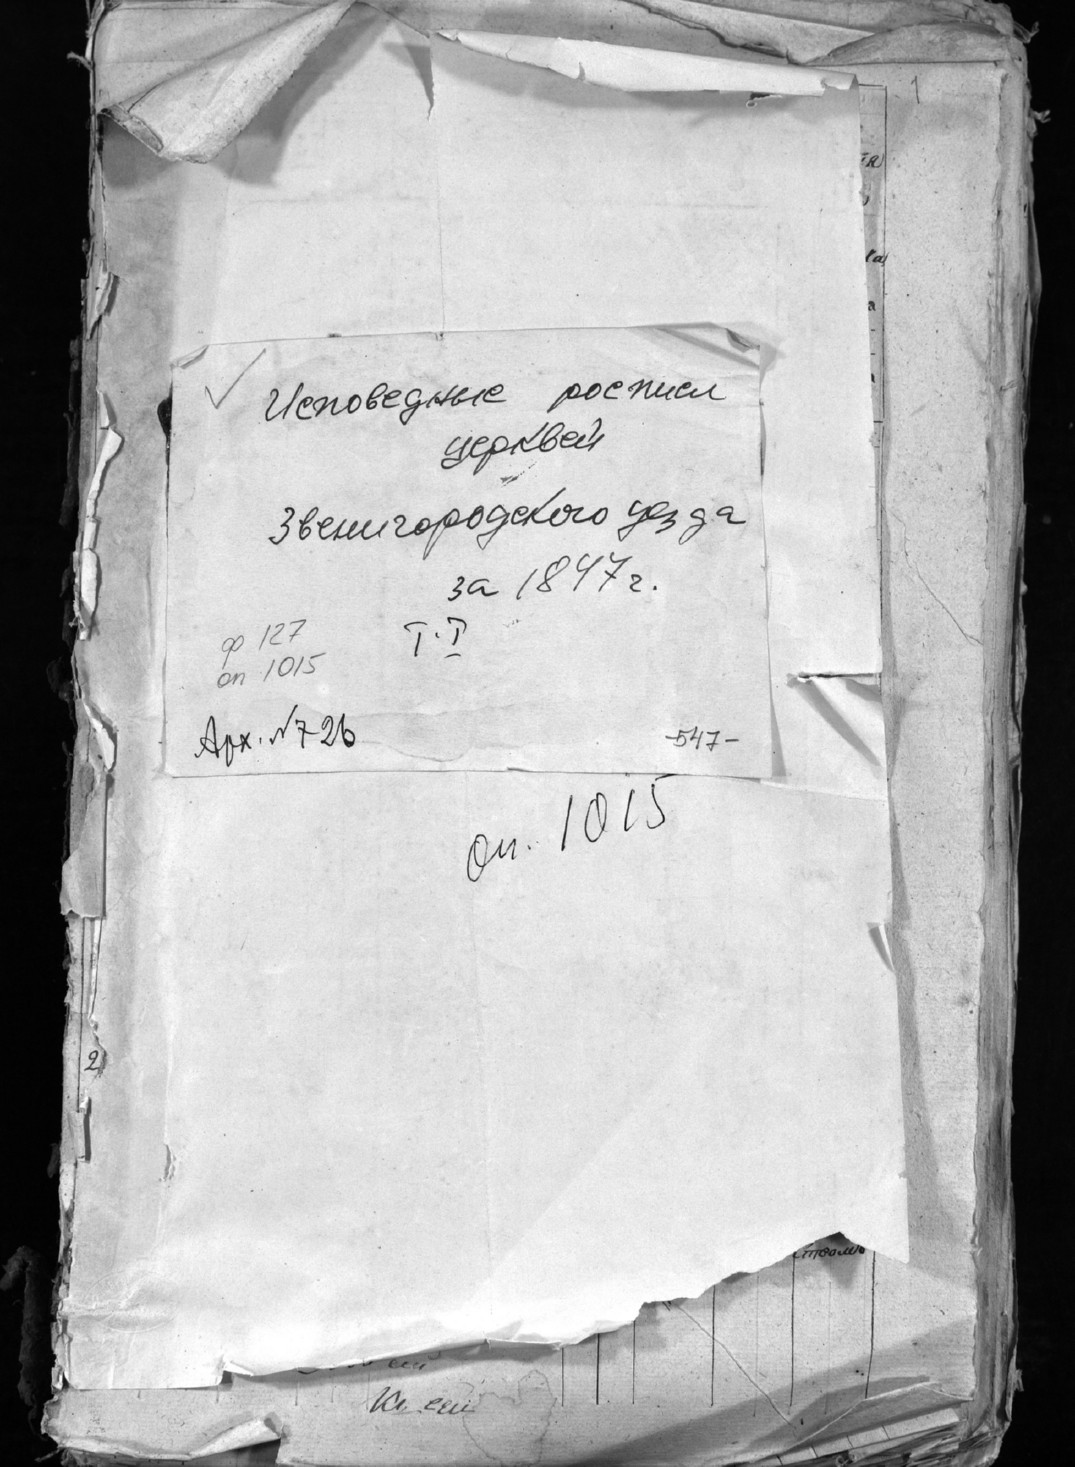 1
Исповедные росписи
церквей
Звенигородского уезда
за 1847 г.
Т. I
ф 127
оп 1015
Арх. №726
-547-
оп. 1015
2